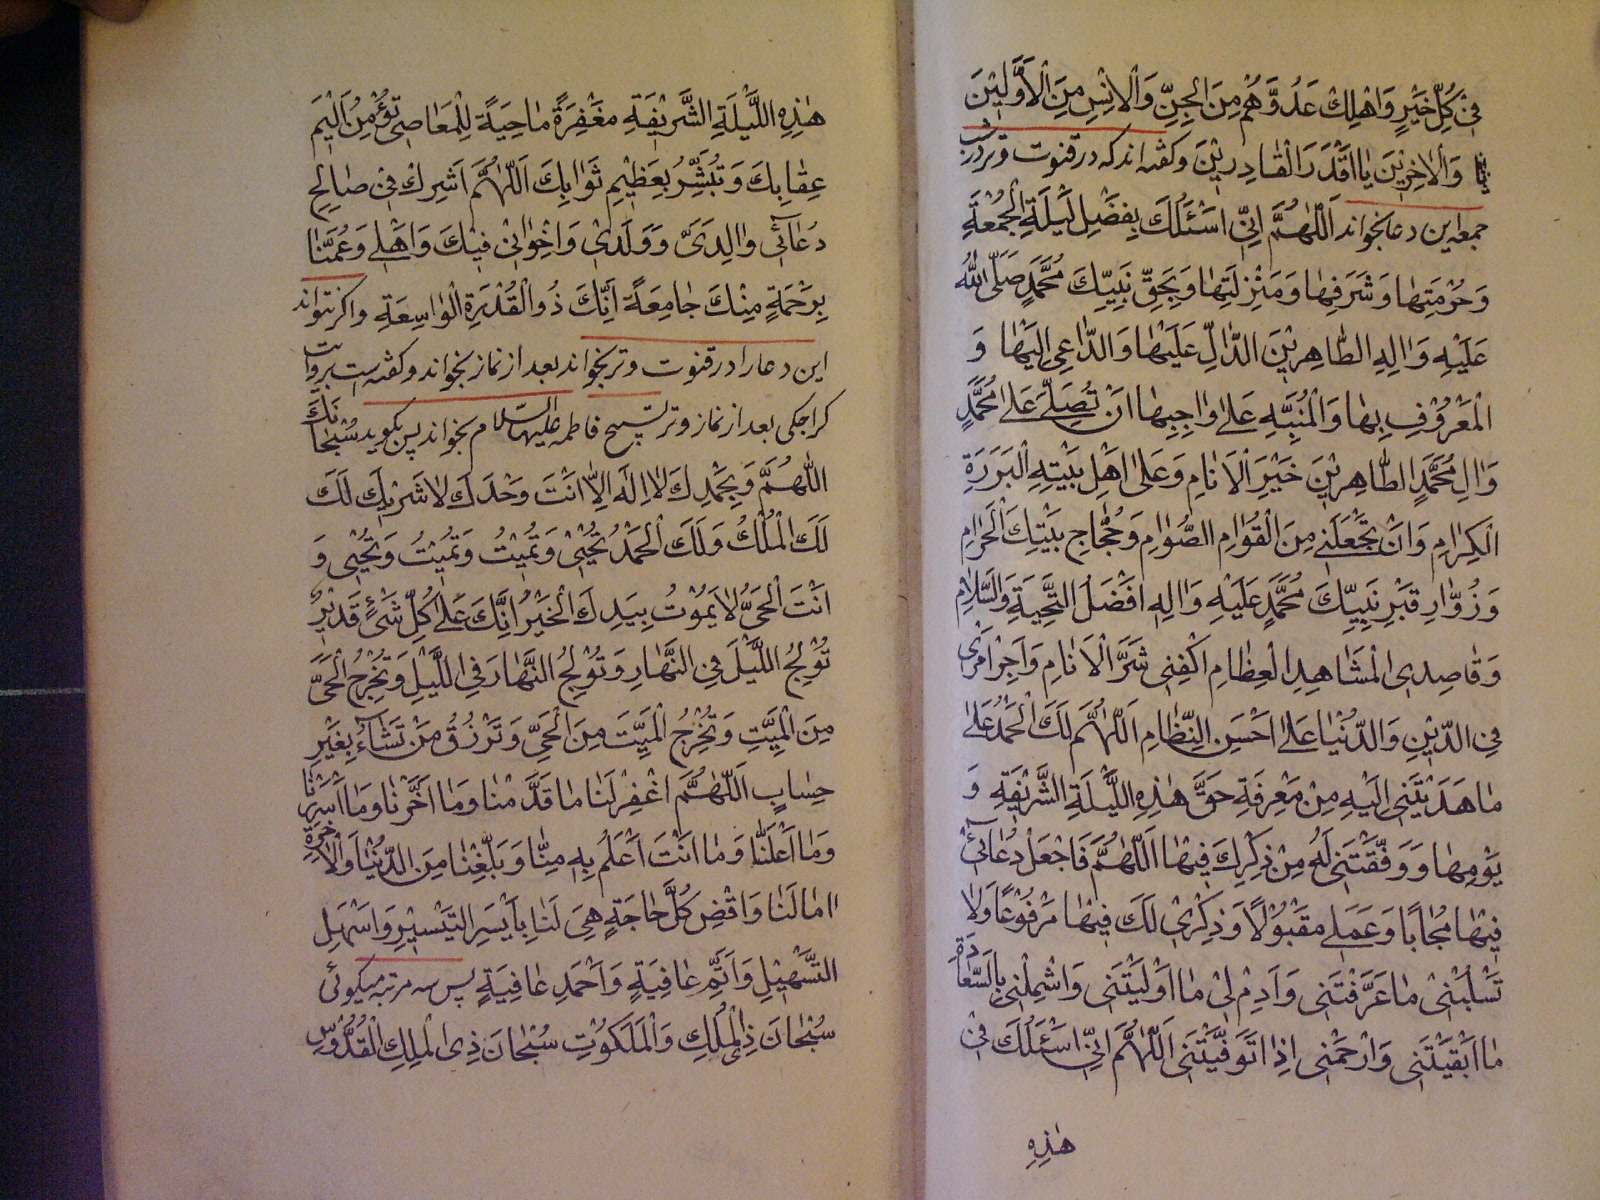 فِي كُلِّ خَيْرٍ وَاَهْلِكْ عَدُوَّهُمْ مِنَ الْجِنِّ وَالْاِنْسِ مِنَ الْاَوَّلِيْنَ
وَالْاٰخِرِيْنَ يٰا اَقْدَرَ الْقٰادِرِيْنَ وكفته اند كه در قنوت وتر در شب
جمعه اين دعا بخواند اَللّٰهُمَّ اِنِّي اَسْئَلُكَ بِفَضْلِ لَيْلَةِ الْجُمُعَةِ
وَحُرْمَتِهٰا وَشَرَفِهٰا وَمَنْزِلَتِهٰا وَبِحَقِّ نَبِيِّكَ مُحَمَّدٍ صَلَّى اللهُ
عَلَيْهِ وَاٰلِهِ الطّٰاهِرِيْنَ الدّٰالِّ عَلَيْهٰا وَالدّٰاعِي اِلَيْهٰا وَ
الْمَعْرُوْفِ بِهٰا وَالْمُنَبِّهِ عَلىٰ وٰاجِبِهٰا اَنْ تُصَلِّيَ عَلىٰ مُحَمَّدٍ
وَاٰلِ مُحَمَّدٍ الطّٰاهِرِيْنَ خَيْرِ الْاَنٰامِ وَعَلىٰ اَهْلِ بَيْتِهِ الْبَرَرَةِ
الْكِرٰامِ وَاَنْ تَجْعَلَنِي مِنَ الْقُوّٰامِ الصُّوّٰامِ وَحُجّٰاجِ بَيْتِكَ الْحَرٰامِ
وَزُوّٰارِ قَبْرِ نَبِيِّكَ مُحَمَّدٍ عَلَيْهِ وَاٰلِهِ اَفْضَلُ التَّحِيَّةِ وَالسَّلٰامِ
وَقٰاصِدِي الْمَشٰاهِدِ الْعِظٰامِ اِكْفِنِي شَرَّ الْاَنٰامِ وَاَجْرِ اَمْرِي
فِي الدِّيْنِ وَالدُّنْيٰا عَلىٰ اَحْسَنِ النِّظٰامِ اَللّٰهُمَّ لَكَ الْحَمْدُ عَلىٰ
مٰا هَدَيْتَنِي اِلَيْهِ مِنْ مَعْرِفَةِ حَقِّ هٰذِهِ اللَّيْلَةِ الشَّرِيْفَةِ وَ
يَوْمِهٰا وَوَفَّقْتَنِي لَهُ مِنْ ذِكْرِكَ فِيهٰا اَللّٰهُمَّ فَاجْعَلْ دُعٰائِي
فِيْهٰا مُجٰابًا وَعَمَلِي مَقْبُوْلًا وَذِكْرِي لَكَ فِيهٰا مَرْفُوْعًا وَلٰا
تَسْلُبْنِي مٰا عَرَّفْتَنِي وَاَدِمْ لِي مٰا اَوْلَيْتَنِي وَاشْمِلْنِي بِالسَّعٰادَةِ
مٰا اَبْقَيْتَنِي وَارْحَمْنِي اِذٰا تَوَفَّيْتَنِي اَللّٰهُمَّ اِنِّي اَسْئَلُكَ فِي
هٰذِهِ
هٰذِهِ اللَّيْلَةِ الشَّرِيْفَةِ مَغْفِرَةً مٰاحِيَةً لِلْمَعٰاصِي تُؤْمِنُ اَلِيْمَ
عِقٰابِكَ وَتُبَشِّرُ بِعَظِيْمِ ثَوٰابِكَ اَللّٰهُمَّ اَشْرِكْ فِي صٰالِحِ
دُعٰائِي وٰالِدَيَّ وَوَلَدِي وَاِخْوٰانِي فِيْكَ وَاَهْلِي وَعُمَّنٰا
بِرَحْمَةٍ مِنْكَ جٰامِعَةً اِنَّكَ ذُو الْقُدْرَةِ الْوٰاسِعَةِ واكر نتواند
اين دعا را در قنوت وتر بخواند بعد از نماز بخواند وكفته است بروايت
كراجكى بعد از نماز وتر تسبيح فاطمه عليها السلام بخواند پس بكويد سُبْحٰانَكَ
اللّٰهُمَّ وَبِحَمْدِكَ لٰا اِلٰهَ اِلّٰا اَنْتَ وَحْدَكَ لٰا شَرِيْكَ لَكَ
لَكَ الْمُلْكُ وَلَكَ الْحَمْدُ تُحْيِيْ وَتُمِيْتُ وَتُمِيْتُ وَتُحْيِي وَ
اَنْتَ الْحَيُّ لٰا يَمُوْتُ بِيَدِكَ الْخَيْرُ اِنَّكَ عَلىٰ كُلِّ شَيْءٍ قَدِيْرٌ
تُوْلِجُ اللَّيْلَ فِي النَّهٰارِ وَتُوْلِجُ النَّهٰارَ فِي اللَّيْلِ وَتُخْرِجُ الْحَيَّ
مِنَ الْمَيِّتِ وَتُخْرِجُ الْمَيِّتَ مِنَ الْحَيِّ وَتَرْزُقُ مَنْ تَشٰاءُ بِغَيْرِ
حِسٰابٍ اَللّٰهُمَّ اغْفِرْ لَنٰا مٰا قَدَّمْنٰا وَمٰا اَخَّرْنٰا وَمٰا اَسْرَرْنٰا
وَمٰا اَعْلَنّٰا وَمٰا اَنْتَ اَعْلَمُ بِهِ مِنّٰا وَبَلِّغْنٰا مِنَ الدُّنْيٰا وَالْاٰخِرَةِ
اٰمٰالَنٰا وَاقْضِ كُلَّ حٰاجَةٍ هِيَ لَنٰا بِاَيْسَرِ التَّيْسِيْرِ وَاَسْهَلِ
التَّسْهِيْلِ وَاَتَمِّ عٰافِيَةٍ وَاَحْمَدِ عٰافِيَةٍ پس سه مرتبه ميكوئى
سُبْحٰانَ ذِي الْمُلْكِ وَالْمَلَكُوْتِ سُبْحٰانَ ذِي الْمَلِكِ الْقُدُّوْسِ